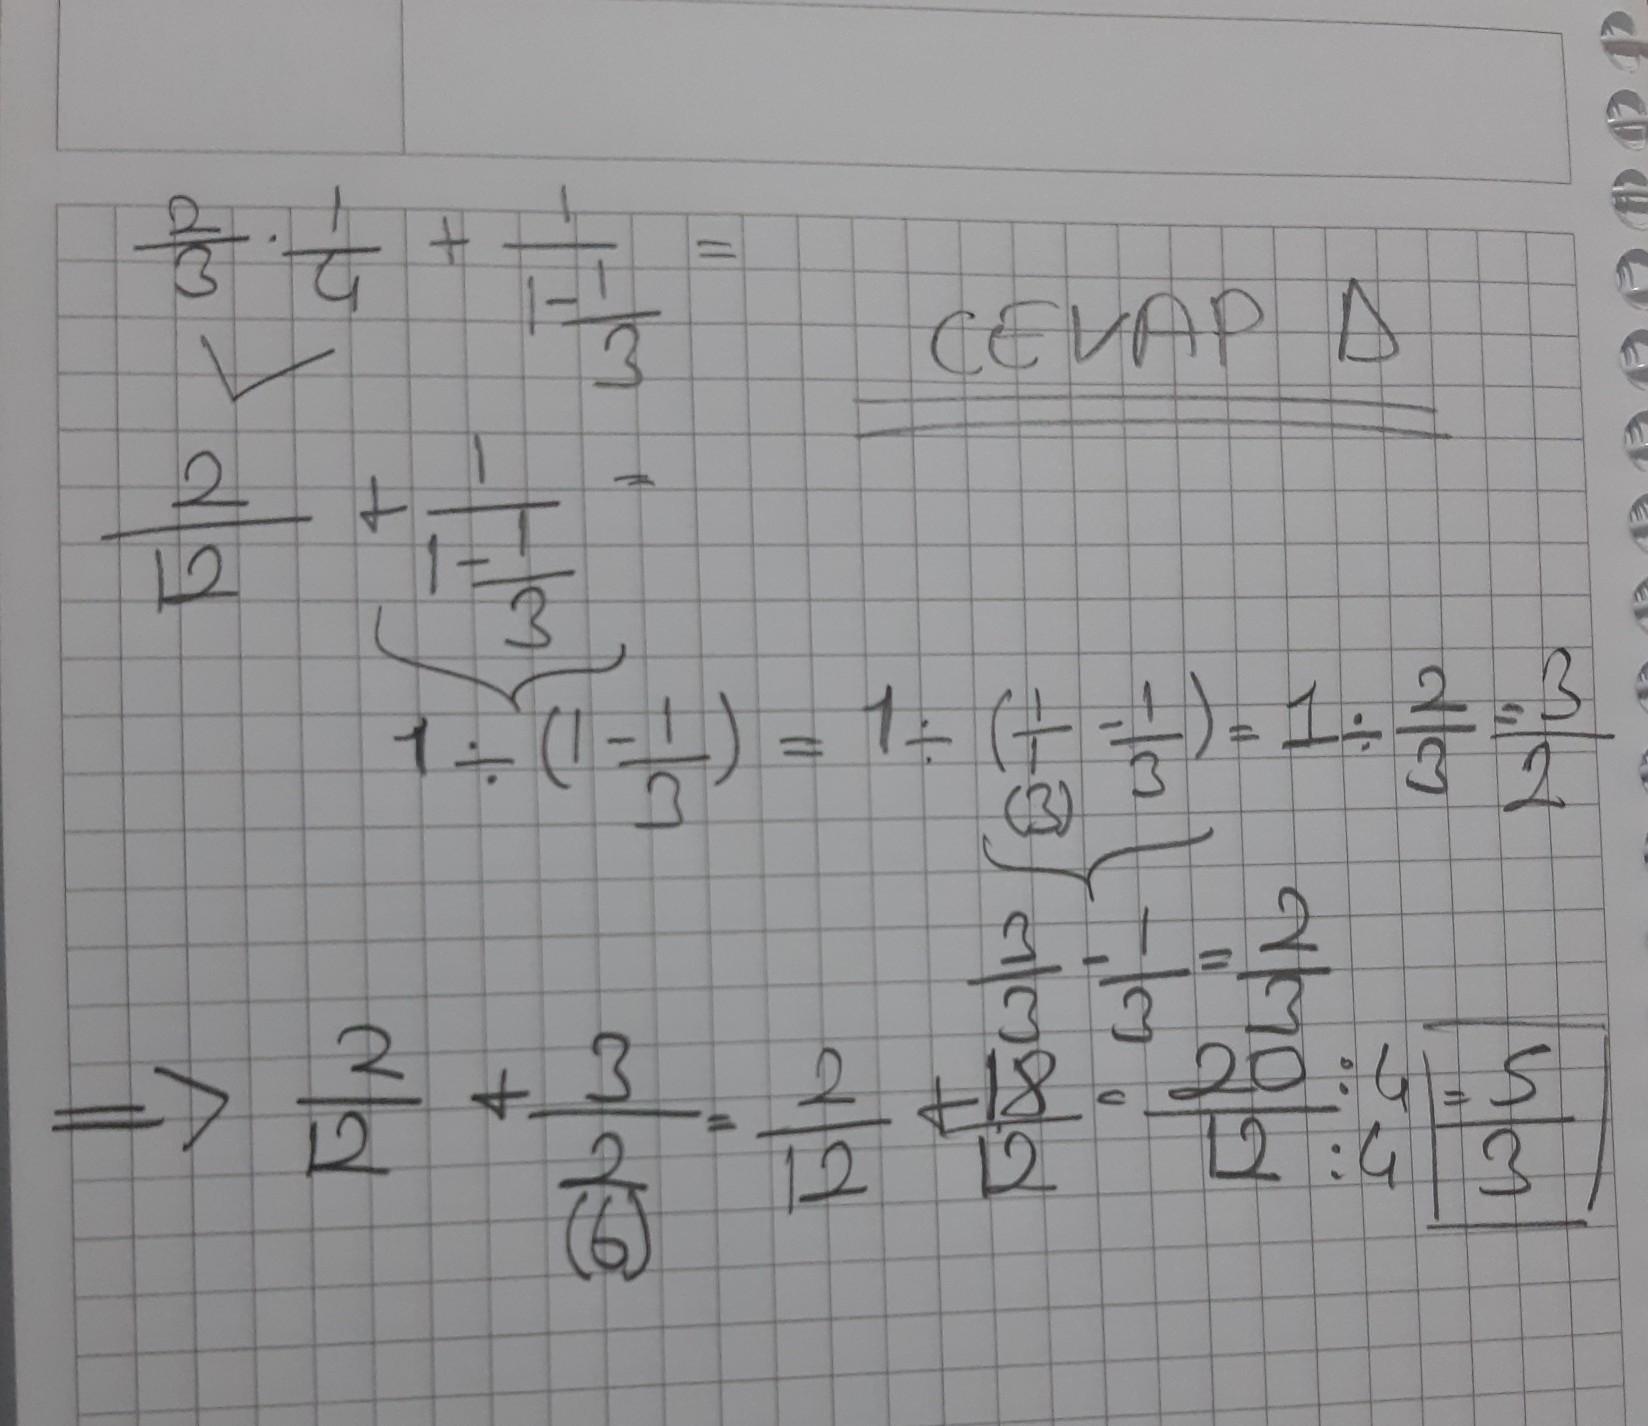 2/3 · 1/4 + 1/(1-1/3) =
CEVAP D
2/12 + 1/(1-1/3) =
1 ÷ (1 - 1/3) = 1 ÷ (1/1 - 1/3) = 1 ÷ 2/3 = 3/2
(3)
3/3 - 1/3 = 2/3
=> 2/12 + 3/2 = 2/12 + 18/12 = 20/12 :4 :4 = 5/3
(6)